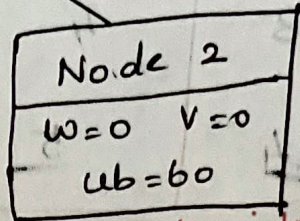 Node 2
w=0 v=0
ub=60